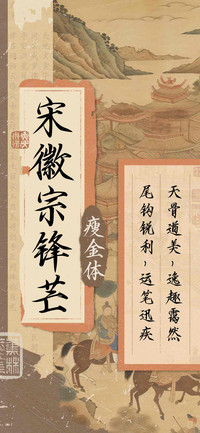 宋徽宗锋芒
瘦金体
天骨遒美，逸趣霭然
尾钩锐利，运笔迅疾